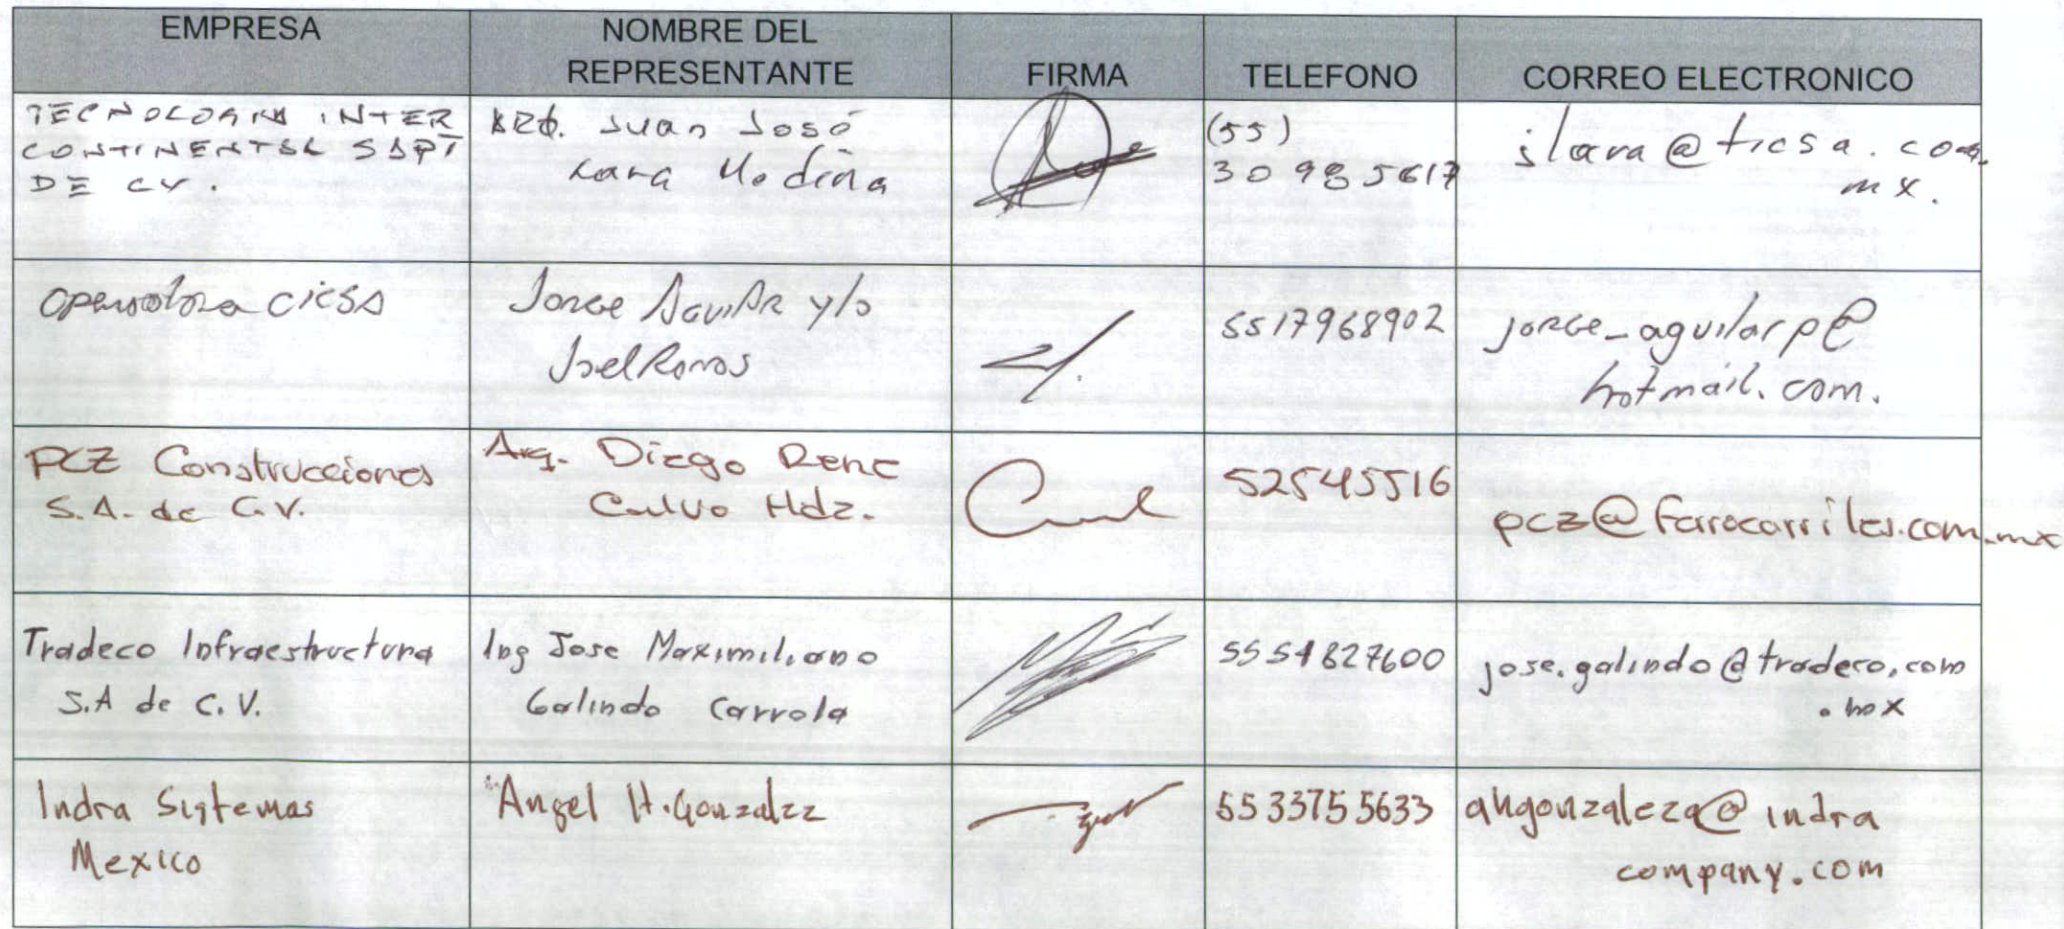 EMPRESA
NOMBRE DEL
REPRESENTANTE
FIRMA
TELEFONO
CORREO ELECTRONICO
TECNOLOGIA INTER
CONTINENTAL SAPI
DE CV.
ARQ. Juan José
Lara Medina
(55)
30985617
jlara@ticsa.com.
mx.
Operadora CICSA
Jorge Aguilar y/o
Joel Ramos
5517968902
jorge_aguilarp@
hotmail.com.
PCZ Construcciones
S.A. de C.V.
Arq. Diego Rene
Calvo Hdz.
52545516
pcz@ferrocarriles.com.mx
Tradeco Infraestructura
S.A de C.V.
Ing Jose Maximiliano
Galindo Carrola
5554827600
jose.galindo@tradeco.com
.mx
Indra Sistemas
Mexico
Angel H. Gonzalez
5533755633
ahgonzaleza@indra
company.com